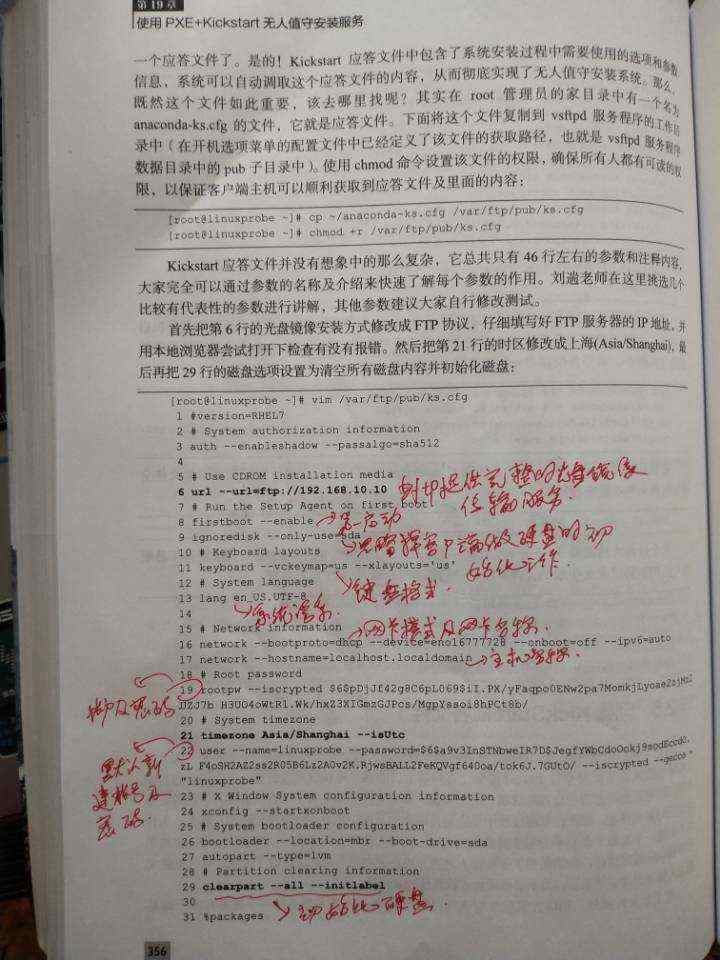 第 19 章
使用 PXE+Kickstart 无人值守安装服务
一个应答文件了。是的！Kickstart 应答文件中包含了系统安装过程中需要使用的选项和参数
信息，系统可以自动调取这个应答文件的内容，从而彻底实现了无人值守安装系统。那么，
既然这个文件如此重要，该去哪里找呢？其实在 root 管理员的家目录中有一个名为
anaconda-ks.cfg 的文件，它就是应答文件。下面将这个文件复制到 vsftpd 服务程序的工作目
录中（在开机选项菜单的配置文件中已经定义了该文件的获取路径，也就是 vsftpd 服务程序
数据目录中的 pub 子目录中）。使用 chmod 命令设置该文件的权限，确保所有人都有可读的权
限，以保证客户端主机可以顺利获取到应答文件及里面的内容：
[root@linuxprobe ~]# cp ~/anaconda-ks.cfg /var/ftp/pub/ks.cfg
[root@linuxprobe ~]# chmod +r /var/ftp/pub/ks.cfg
Kickstart 应答文件并没有想象中的那么复杂，它总共只有 46 行左右的参数和注释内容，
大家完全可以通过参数的名称及介绍来快速了解每个参数的作用。刘遄老师在这里挑选几个
比较有代表性的参数进行讲解，其他参数建议大家自行修改测试。
首先把第 6 行的光盘镜像安装方式修改成 FTP 协议，仔细填写好 FTP 服务器的 IP 地址，并
用本地浏览器尝试打开下检查有没有报错。然后把第 21 行的时区修改成上海(Asia/Shanghai)，最
后再把 29 行的磁盘选项设置为清空所有磁盘内容并初始化磁盘：
[root@linuxprobe ~]# vim /var/ftp/pub/ks.cfg
1 #version=RHEL7
2 # System authorization information
3 auth --enableshadow --passalgo=sha512
4
5 # Use CDROM installation media
6 url --url=ftp://192.168.10.10 提供完整的光盘镜像
传输服务.
7 # Run the Setup Agent on first boot
8 firstboot --enable 启动
9 ignoredisk --only-use=sda 客户端做硬盘的初
始化工作.
10 # Keyboard layouts
11 keyboard --vckeymap=us --xlayouts='us' 键盘格式
12 # System language
13 lang en_US.UTF-8 系统语言.
14
15 # Network information 网卡模式及网卡名称.
16 network --bootproto=dhcp --device=eno16777728 --onboot=off --ipv6=auto
17 network --hostname=localhost.localdomain 主机名称.
18 # Root password
19 rootpw --iscrypted
密码
20 # System timezone
21 timezone Asia/Shanghai --isUtc
22 user --name=linuxprobe
--iscrypted --gecos="
"linuxprobe"
默认新
建帐号及
密码.
23 # X Window System configuration information
24 xconfig --startxonboot
25 # System bootloader configuration
26 bootloader --location=mbr --boot-drive=sda
27 autopart --type=lvm
28 # Partition clearing information
29 clearpart --all --initlabel
初始化硬盘.
30
31 %packages
356